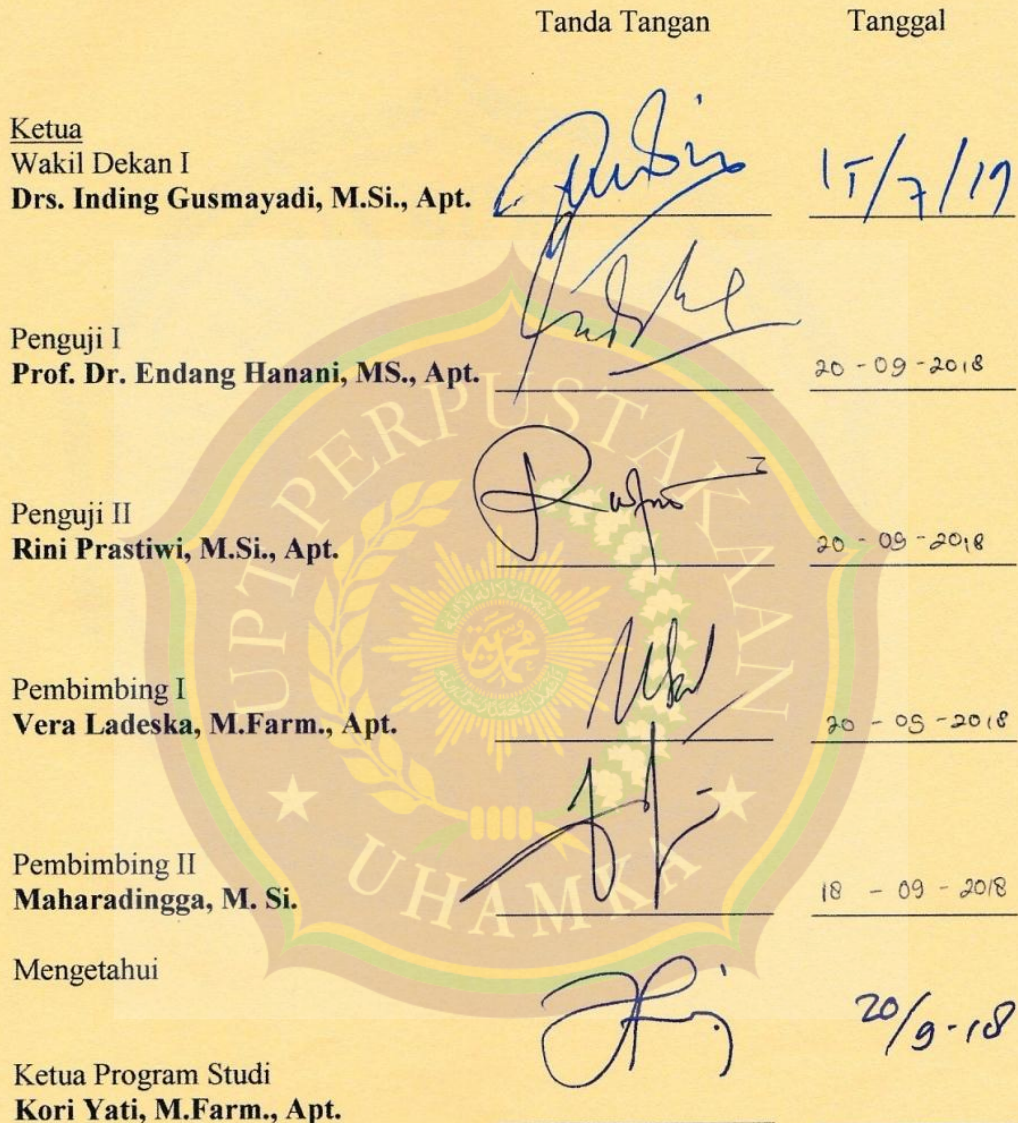 Tanda Tangan Tanggal
Ketua
Wakil Dekan I
Drs. Inding Gusmayadi, M.Si., Apt. 15/7/19
Penguji I
Prof. Dr. Endang Hanani, MS., Apt. 20-09-2018
Penguji II
Rini Prastiwi, M.Si., Apt. 20-09-2018
Pembimbing I
Vera Ladeska, M.Farm., Apt. 20-09-2018
Pembimbing II
Maharadingga, M. Si. 18-09-2018
Mengetahui
20/9-18
Ketua Program Studi
Kori Yati, M.Farm., Apt.
UPT PERPUSTAKAAN
UHAMKA